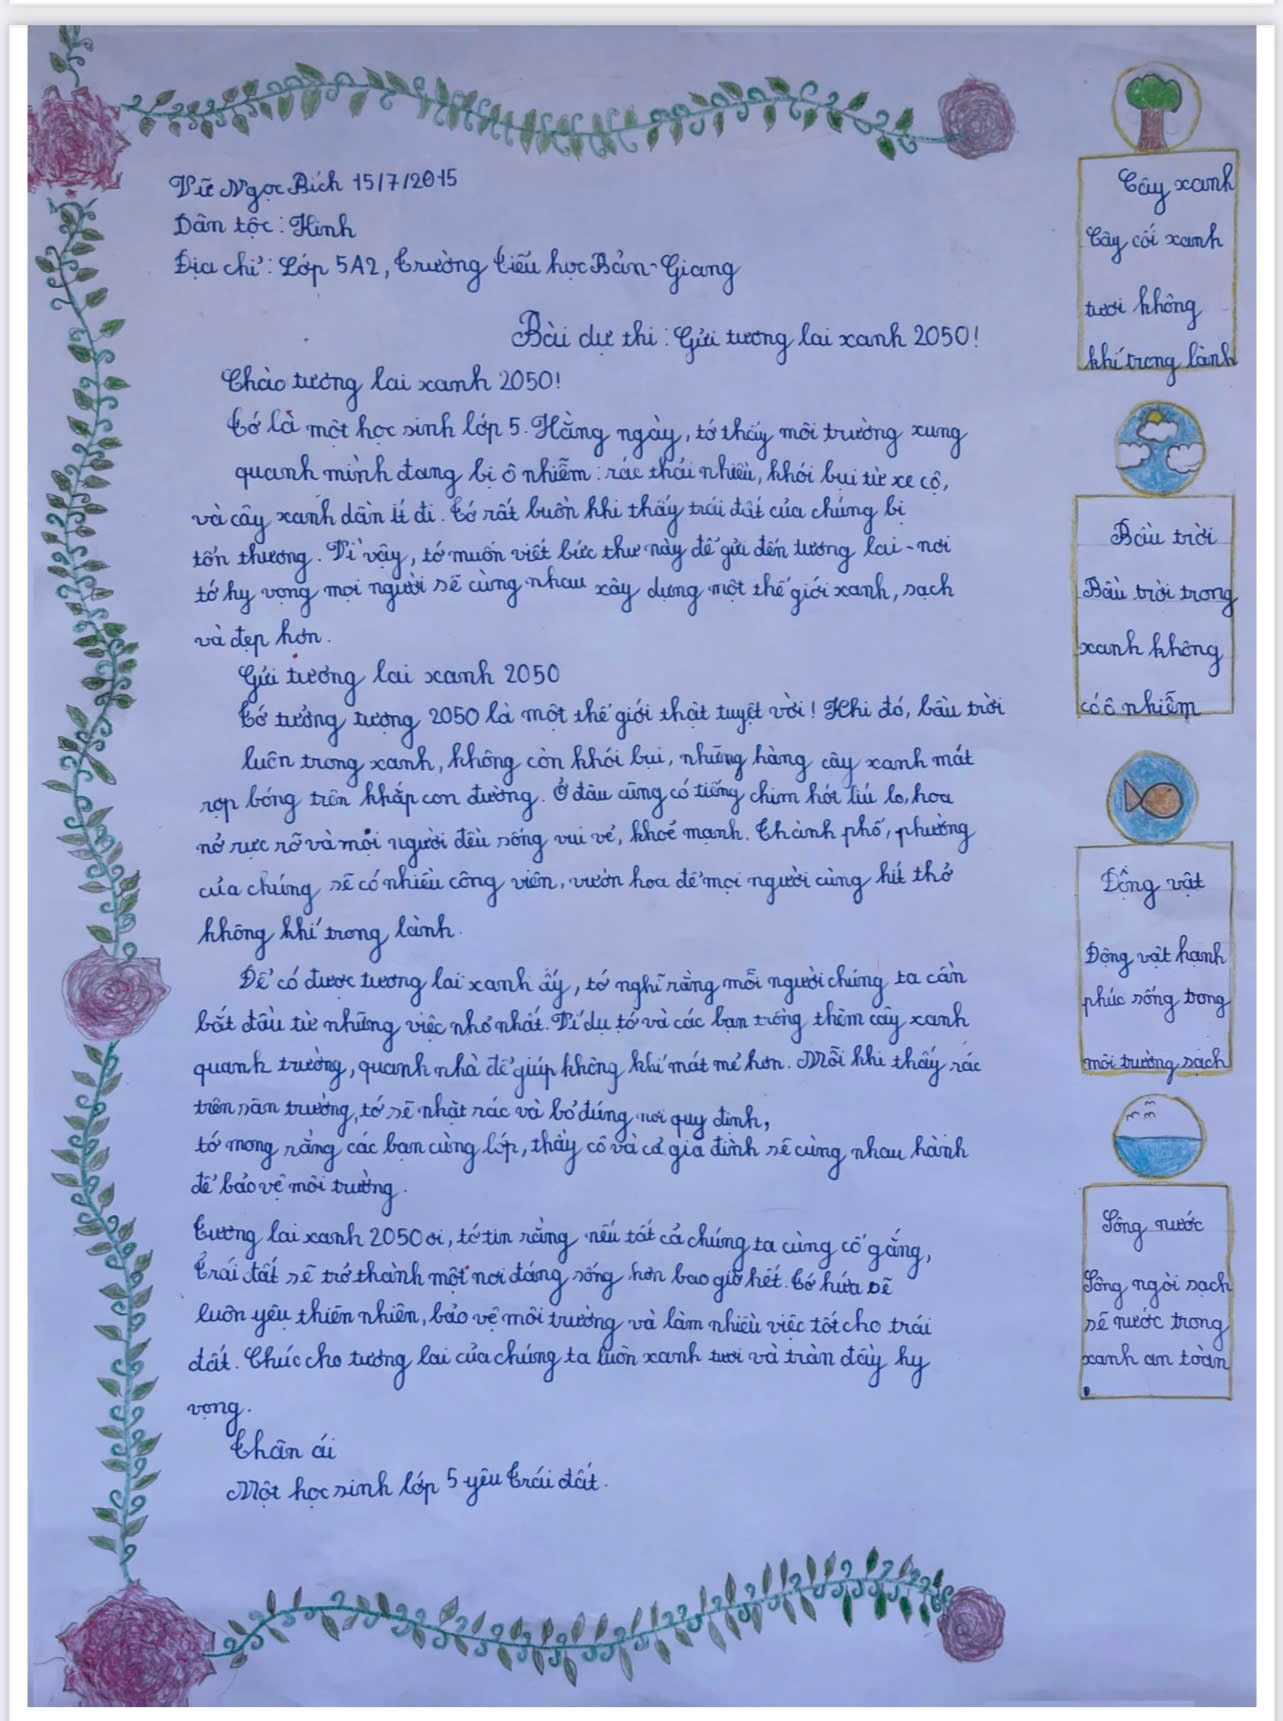 Vũ Ngọc Bích 15/7/2015
Dân tộc: Kinh
Địa chỉ: Lớp 5A2, Trường tiểu học Bản-Giang
Bài dự thi: Gửi tương lai xanh 2050!
Chào tương lai xanh 2050!
Tớ là một học sinh lớp 5. Hằng ngày, tớ thấy môi trường xung
quanh mình đang bị ô nhiễm: rác thải nhiều, khói bụi từ xe cộ,
và cây xanh dần ít đi. Tớ rất buồn khi thấy trái đất của chúng bị
tổn thương. Vì vậy, tớ muốn viết bức thư này để gửi đến tương lai - nơi
tớ hy vọng mọi người sẽ cùng nhau xây dựng một thế giới xanh, sạch
và đẹp hơn.
Gửi tương lai xanh 2050
Tớ tưởng tượng 2050 là một thế giới thật tuyệt vời! Khi đó, bầu trời
luôn trong xanh, không còn khói bụi, những hàng cây xanh mát
rợp bóng trên khắp con đường. Ở đâu cũng có tiếng chim hót líu lo, hoa
nở rực rỡ và mọi người đều sống vui vẻ, khoẻ mạnh. Thành phố, phường
của chúng sẽ có nhiều công viên, vườn hoa để mọi người cùng hít thở
không khí trong lành.
Để có được tương lai xanh ấy, tớ nghĩ rằng mỗi người chúng ta cần
bắt đầu từ những việc nhỏ nhất. Ví dụ tớ và các bạn trồng thêm cây xanh
quanh trường, quanh nhà để giúp không khí mát mẻ hơn. Mỗi khi thấy rác
trên sân trường, tớ sẽ nhặt rác và bỏ đúng nơi quy định,
tớ mong rằng các bạn cùng lớp, thầy cô và cả gia đình sẽ cùng nhau hành
để bảo vệ môi trường.
Tương lai xanh 2050 ơi, tớ tin rằng nếu tất cả chúng ta cùng cố gắng,
Trái đất sẽ trở thành một nơi đáng sống hơn bao giờ hết. Tớ hứa sẽ
luôn yêu thiên nhiên, bảo vệ môi trường và làm nhiều việc tốt cho trái
đất. Chúc cho tương lai của chúng ta luôn xanh tươi và tràn đầy hy
vọng.
Thân ái
Một học sinh lớp 5 yêu Trái đất.
Cây xanh
Cây cối xanh
tươi không
khí trong lành
Bầu trời
Bầu trời trong
xanh không
có ô nhiễm
Động vật
Động vật hạnh
phúc sống trong
môi trường sạch
Sông nước
Sông ngòi sạch
sẽ nước trong
xanh an toàn
.